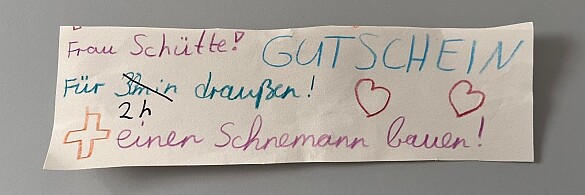 Frau Schütte! GUTSCHEIN
Für 3min draußen!
2h
+ einen Schnemann bauen!